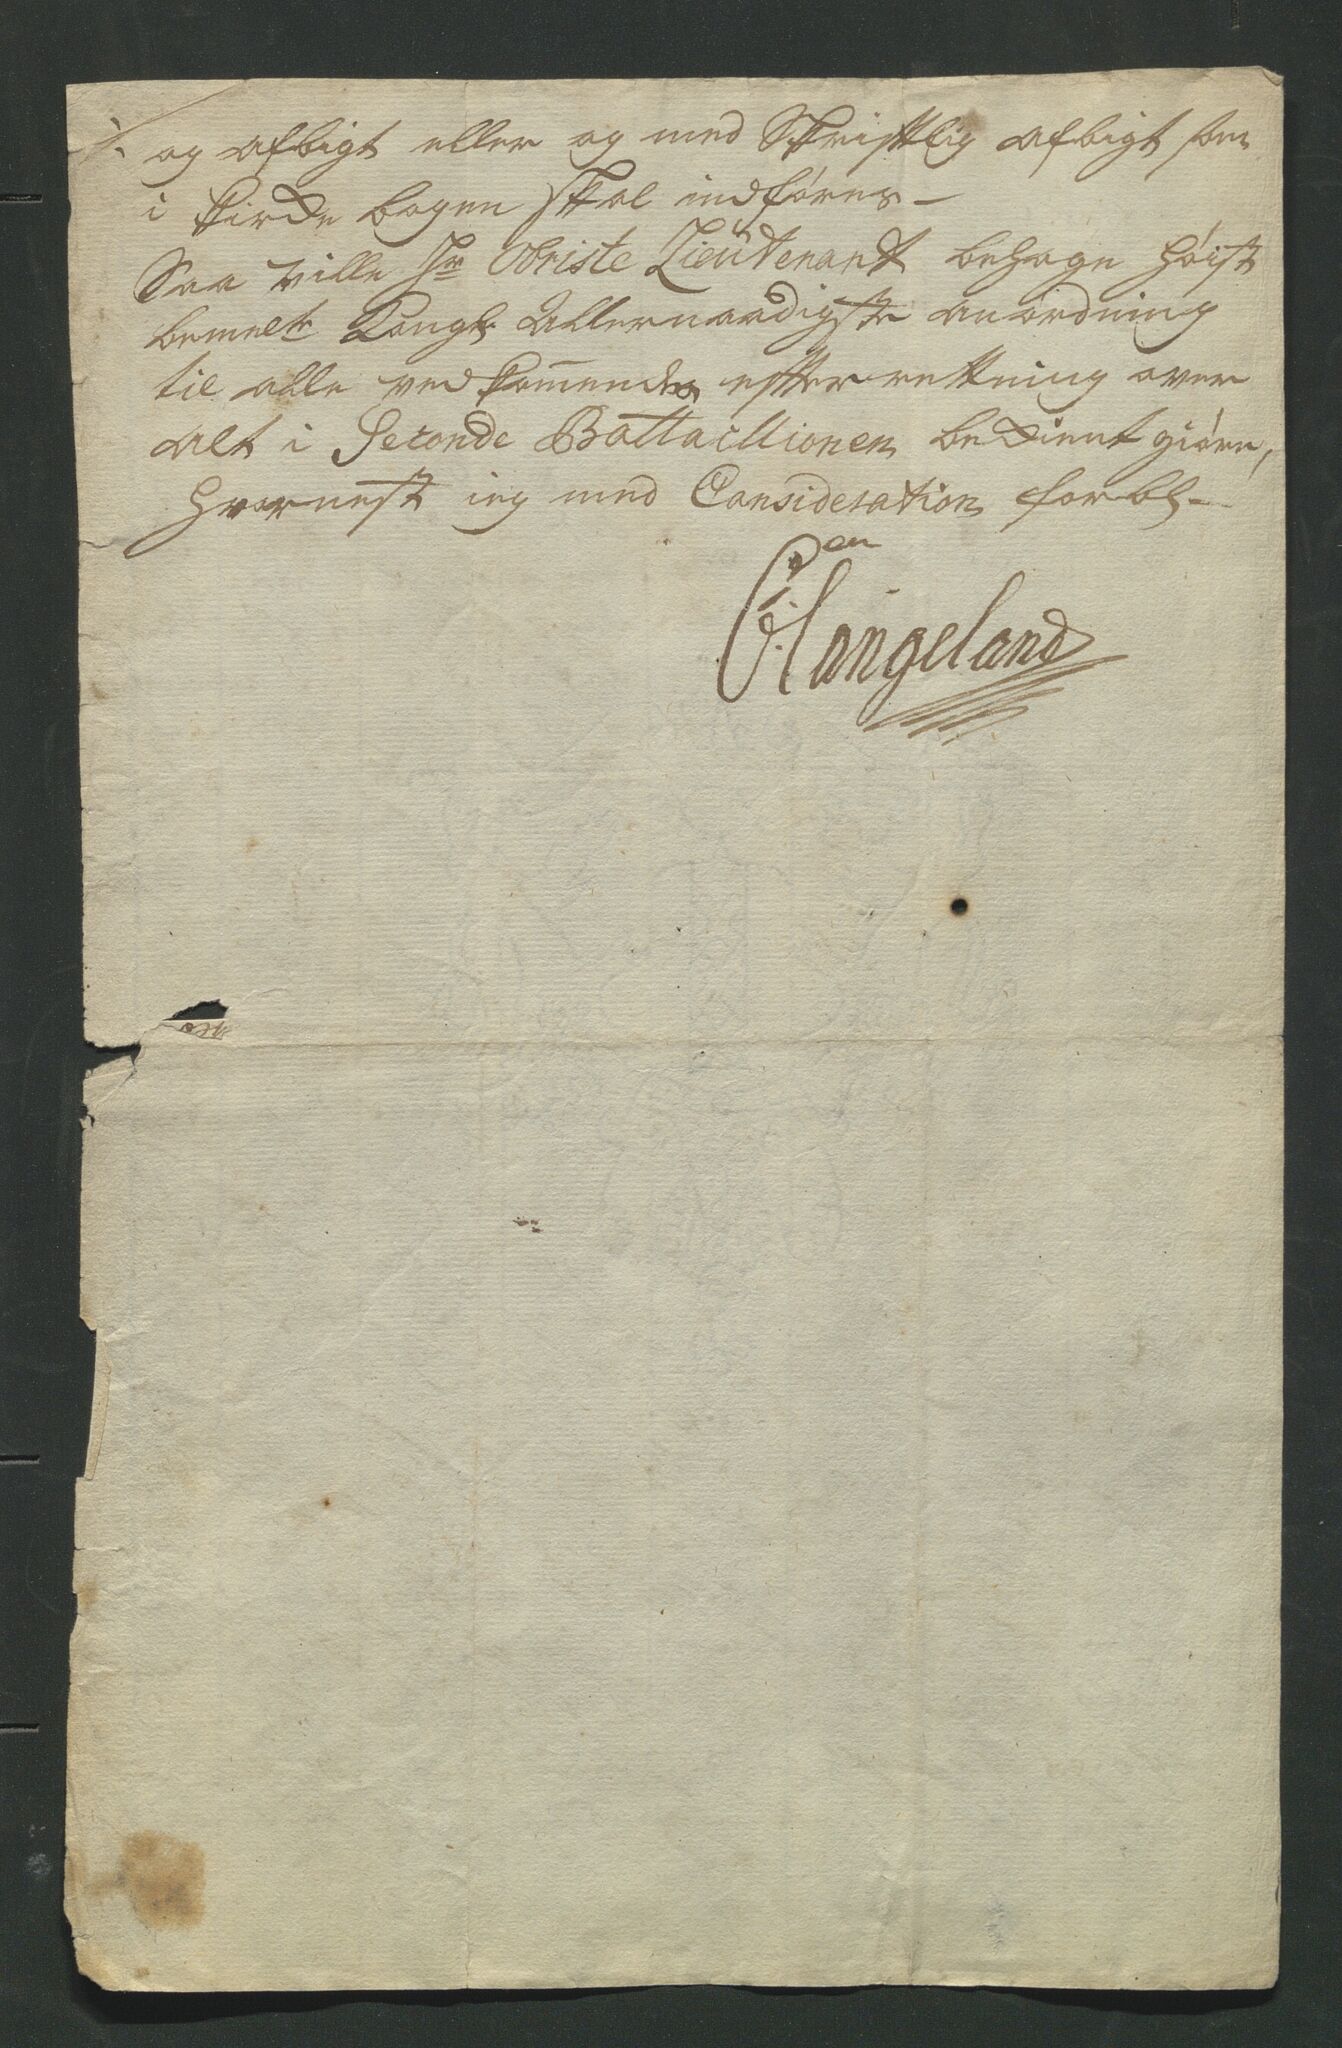 og afbigt eller og med Skrifttlig afbigt som
i Kirke bogen skal indføres –
Saa ville Hr Obriste Lieutenant behage høist
bemelte Kongl: Allernaadigste anordning
til alle vedkommendes effterrettning over
alt i Seconde Battaillionen bekient giøre,
hvornest ieg med Consideration forbl–
en
Mangeland